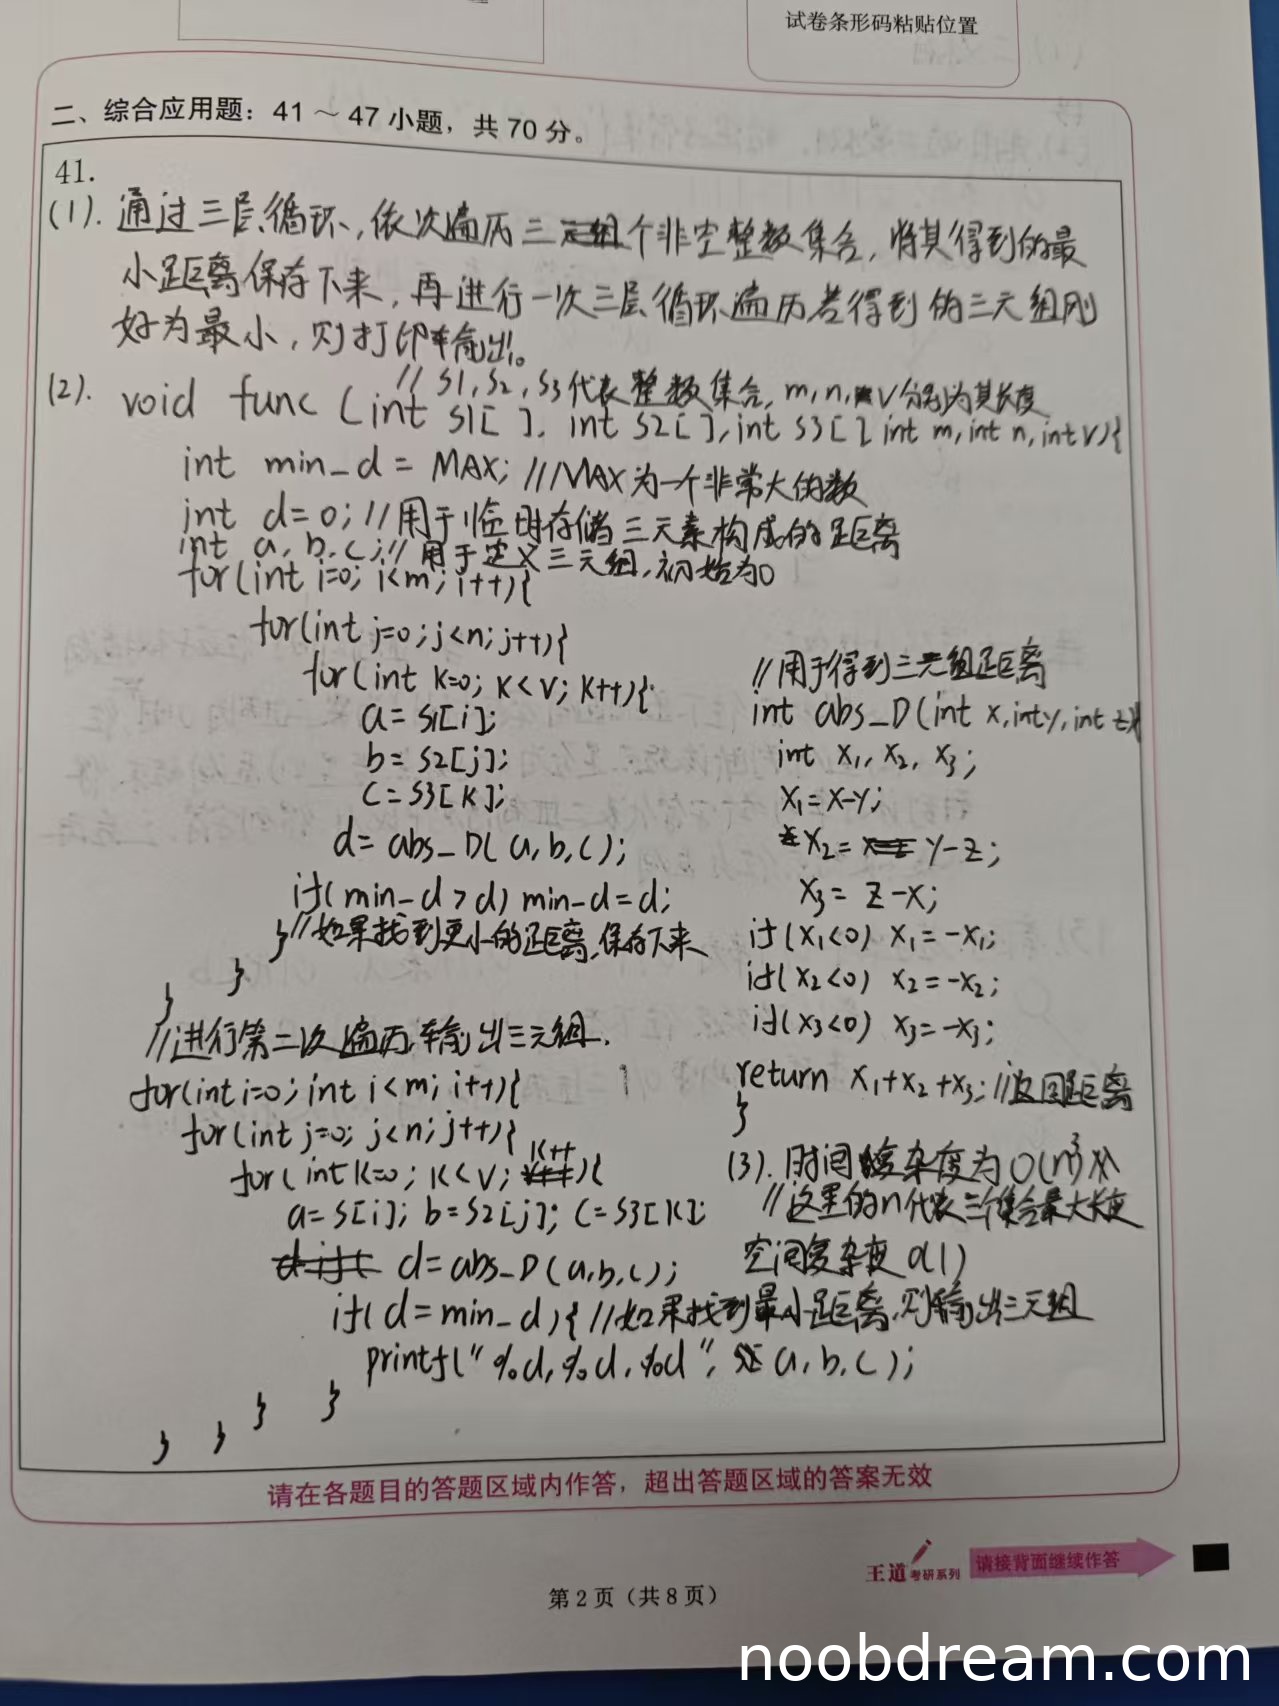 试卷条形码粘贴位置
二、综合应用题：41～47小题，共70分。
41.
(1). 通过三层循环，依次遍历三个非空整数集合，将其得到的最
小距离保存下来，再进行一次三层循环遍历若得到的三元组刚
好为最小，则打印输出。
(2). // S1, S2, S3代表整数集合, m, n, V分别为其长度
void func (int S1[ ], int S2[ ], int S3[ ] int m, int n, int V){
int min_d = MAX; //MAX为一个非常大的数
int d=0; //用于临时存储三元素构成的距离
int a, b, c; // 用于定义三元组, 初始为0
for(int i=0; i<m; i++){
for(int j=0; j<n; j++){
for(int K=0; K<V; K++){
a = S1[i];
b = S2[j];
C = S3[K];
d = abs_D(a,b,c);
if(min_d > d) min_d = d;
} //如果找到更小的距离,保存下来
}
}
//进行第二次遍历,输出三元组.
for(int i=0; int i<m; i++){
for(int j=0; j<n; j++){
for(int K=0; K<V; K++){
a=S[i]; b=S2[j]; C=S3[K];
d=abs_D(a,b,c);
if(d=min_d){ //如果找到最小距离,则输出三元组
printf("%d,%d,%d", a,b,c);
}
}
}
}
//用于得到三元组距离
int abs_D(int x, int y, int z){
int x1, x2, x3;
x1=x-y;
x2= y-z;
x3= z-x;
if(x1<0) x1=-x1;
if(x2<0) x2=-x2;
if(x3<0) x3=-x3;
return x1+x2+x3; //返回距离
}
(3). 时间复杂度为O(n³)
//这里的n代表三个集合最大长度
空间复杂度O(1)
请在各题目的答题区域内作答，超出答题区域的答案无效
王道考研系列
请接背面继续作答
第2页（共8页）
noobdream.com